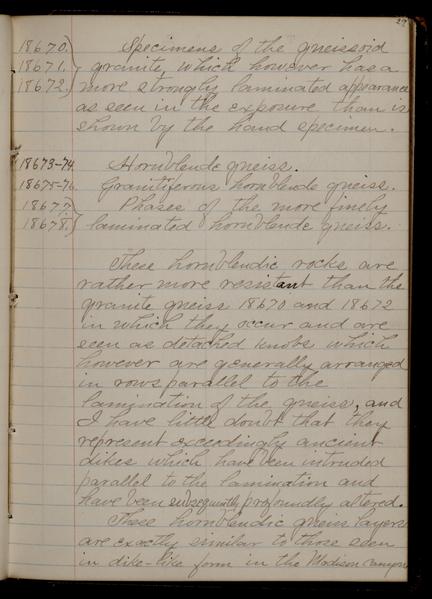 29
18670.} Specimens of the gneissoid
18671. granite, which however has a
18672. more strongly laminated appearance
as seen in the exposure than is
shown by the hand specimen.
18673-74. Hornblende gneiss.
18675-76. Granitiferous hornblende gneiss.
18677.} Phases of the more finely
18678.} laminated hornblende gneiss.
These hornblendic rocks are
rather more resistant than the
granite gneiss 18670 and 18672
in which they occur and are
seen as detached knobs which
however are generally arranged
in rows parallel to the
lamination of the gneiss, and
I have little doubt that they
represent exceedingly ancient
dikes which have been intruded
parallel to the lamination and
have been subsequently profoundly altered.
These hornblendic gneiss layers
are exactly similar to those seen
in dike-like form in the Madison Canyon